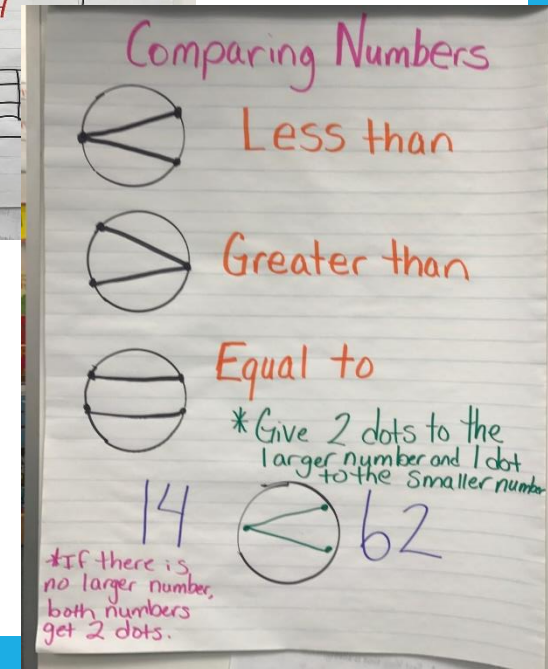 Comparing Numbers
Less than
Greater than
Equal to
*Give 2 dots to the
larger number and 1 dot
to the smaller number
14 62
*If there is
no larger number,
both numbers
get 2 dots.